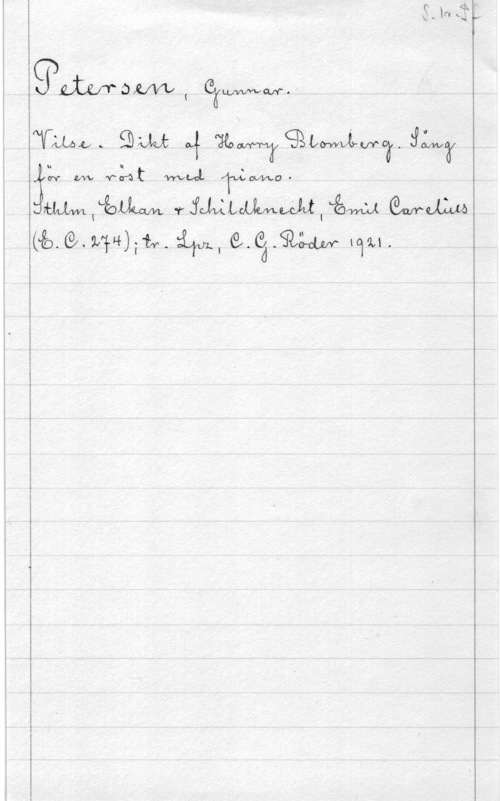 S. tr.
Petersen, Gunnar.
Vilse. Dikt af Harry Blomberg. Sång
för en röst med piano.
Sthlm, Elkan & Schildknecht, Emil Carelius
(E. C. 274); tr. Lpz, C. G. Röder 1921.